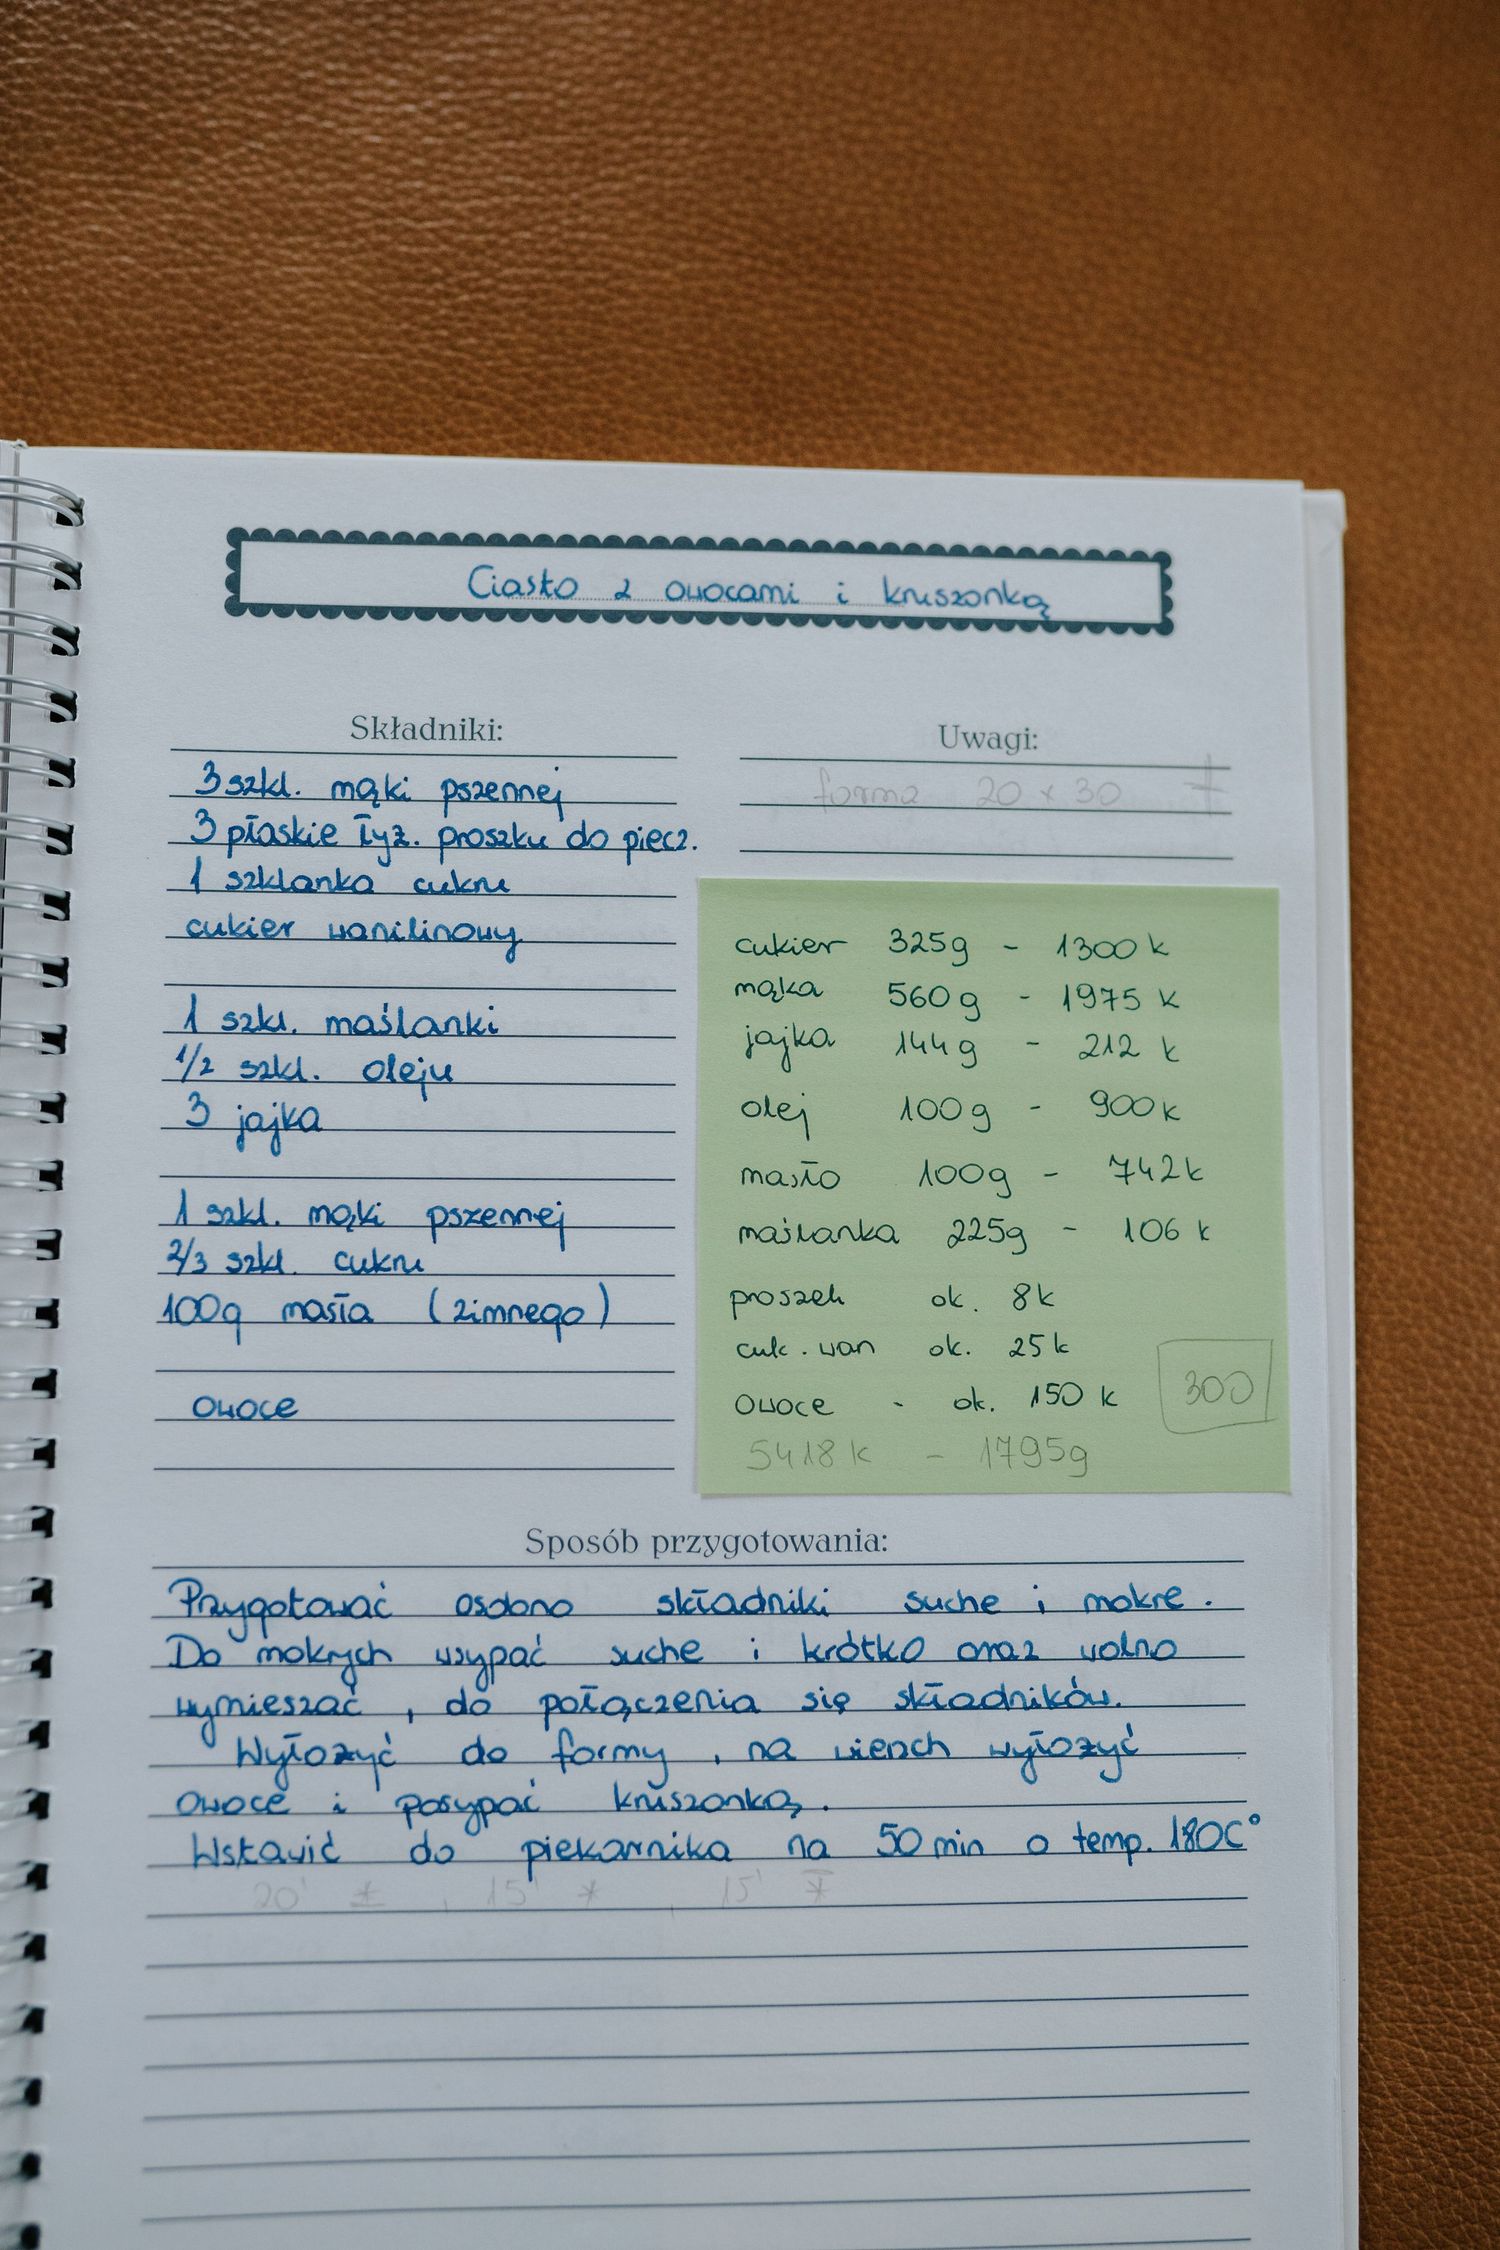 Ciasto z owocami i kruszonką
Składniki:
3 szkl. mąki pszennej
3 płaskie łyż. proszku do piecz.
1 szklanka cukru
cukier wanilinowy
1 szkl. maślanki
1/2 szkl. oleju
3 jajka
1 szkl. mąki pszennej
2/3 szkl. cukru
100g masła (zimnego)
owoce
Uwagi:
forma 20 x 30
cukier 325g - 1300 k
mąka 560g - 1975 k
jajka 144g - 212 k
olej 100g - 900k
masło 100g - 742k
maślanka 225g - 106 k
proszek ok. 8k
cuk. wan ok. 25k
owoce - ok. 150 k
300
5418k - 1795g
Sposób przygotowania:
Przygotować osobno składniki suche i mokre.
Do mokrych wsypać suche i krótko oraz wolno
wymieszać, do połączenia się składników.
Wyłożyć do formy, na wierzch wyłożyć
owoce i posypać kruszonką.
Wstawić do piekarnika na 50 min o temp. 180C°
20' , 15' , 15'